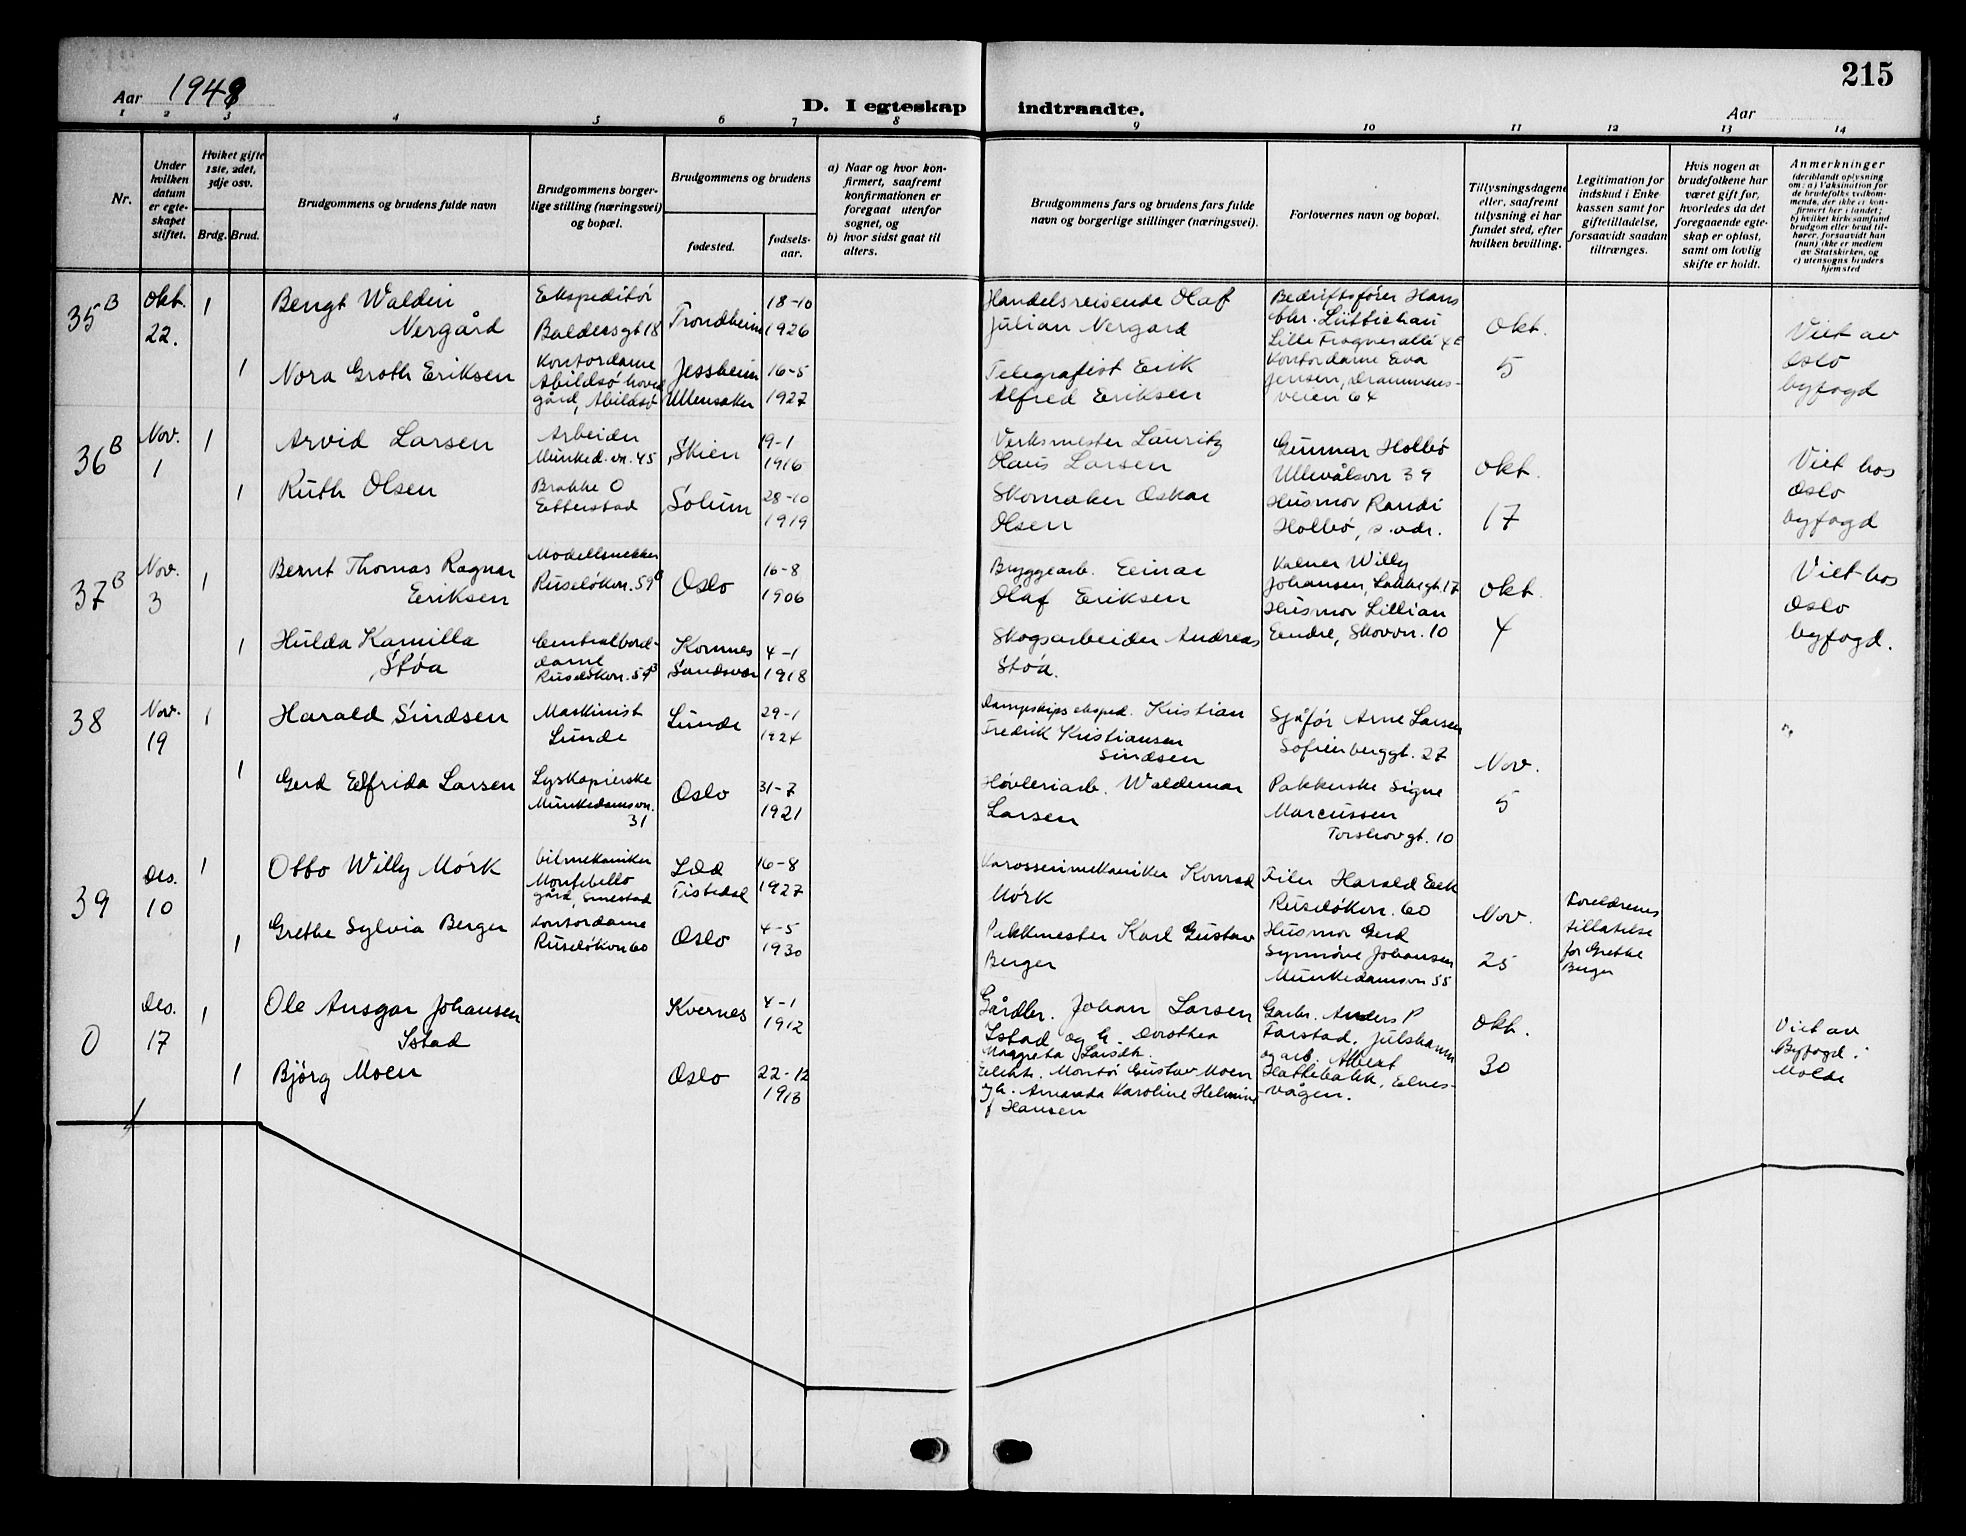 215
Aar 1948
D. I egteskap indtraadte.
Aar
1 2 3 4 5 6 7 8 9 10 11 12 13 14
Nr.
Under hvilken datum er egteskapet stiftet.
Hviket gifte 1ste, 2det, 3dje osv.
Brdg. Brud.
Brudgommens og brudens fulde navn
Brudgommens borgerlige stilling (næringsvei) og bopæl.
Brudgommens og brudens
fødested.
fødselsaar.
a) Naar og hvor konfirmert, saafremt konfirmationen er foregaat utenfor sognet, og
b) hvor sidst gaat til alters.
Brudgommens fars og brudens fars fulde navn og borgerlige stillinger (næringsvei).
Forlovernes navn og bopæl.
Tillysningsdagene eller, saafremt tillysning ei har fundet sted, efter hvilken bevilling.
Legitimation for indskud i Enkekassen samt for giftetilladelse, forsaavidt saadan tiltrænges.
Hvis nogen av brudefolkene har været gift før, hvorledes da det foregaaende egteskap er opløst, samt om lovlig skifte er holdt.
Anmerkninger (deriblandt oplysning om: a) Vaksination for de brudefolks vedkommende, der ikke er konfirmert her i landet; b) hvilket kirkesamfund brudgom eller brud tilhører, forsaavidt han (hun) ikke er medlem av Statskirken, og c) utensogns bruders hjemsted
35B
Okt. 22.
1
Bengt Waldin Nergård
Ekspeditør
Baldersgt 18
Trondheim
18-10
1926
Handelsreisende Olaf
Julian Nergård
Bedriftsfører Hans
Chr. Lüttichau
Lille Frogneralle 4E
Okt. 5
Viet av
Oslo
byfogd
1
Nora Groth Eriksen
Kontordame
Abildsø hovedgård, Abildsø
Jessheim
Ullensaker
16-5
1927
Telegrafist Erik
Alfred Eriksen
Kontordame Eva
Jensen, Drammensveien 64
36B
Nov. 1
1
Arvid Larsen
Arbeider
Munked.vn. 45
Skien
19-1
1916
Verksmester Lauritz
Olaus Larsen
Gunnar Holbø
Ullevålsvn 39
Okt. 17
Viet hos
Oslo
byfogd
1
Ruth Olsen
Brakke O
Etterstad
Solum
28-10
1919
Skomaker Oskar
Olsen
Husmor Randi
Holbø, s. adr.
37B
Nov. 3
1
Bernt Thomas Ragnar
Eriksen
Modellsnekker
Ruseløkvn. 59B
Oslo
16-8
1906
Bryggearb. Einar
Olaf Eriksen
Kelner Willy
Johansen, Lakkegt. 17
Husmor Lillian
Eendre, Skovvn. 10
Okt. 4
Viet hos
Oslo
byfogd.
1
Hulda Kamilla
Støa
Centralborddame
Ruseløkvn. 59B
Komnes
Sandsvær
4-1
1918
Skogsarbeider Andreas
Støa.
38
Nov. 19
1
Harald Sindsen
Maskinist
Lunde
Lunde
29-1
1924
Dampskips eksped. Kristian
Fredrik Kristiansen
Sindsen
Sjåfør Arne Larsen
Sofienberggt. 27
Nov. 5
1
Gerd Elfrida Larsen
Lyskopierske
Munkedamsvn. 31
Oslo
31-7
1921
Høvleriarb. Waldemar
Larsen
Pakkerske Signe
Marcussen
Torshovgt. 10
39
Des. 10
1
Otto Willy Mørk
bilmekaniker
Montebello
gård, Smestad
Idd
Tistedal
16-8
1927
Karosserimekaniker Konrad
Mørk
Filer Harald Eek
Ruseløkvn. 60
Nov. 25
Foreldrenes
tillatelse
for Grethe
Berger
1
Grethe Sylvia Berger
Kontordame
Ruseløkvn 60
Oslo
4-5
1930
Pikkmester Karl Gustav
Berger
Husmor Gerd
Synnøve Johansen
Munkedamsvn 55
0
Des. 17
1
Ole Ansgar Johansen
Istad
Kvernes
4-1
1912
Gårdbr. Johan Larsen
Istad og h. Dorothea
Magreta Larsdt.
Garbr. Anders P
Farstad, Julshamn
og arb. Albert
Hattebakk, Elnesvågen.
Okt. 30
Viet av
Byfogd i
Molde
1
Bjørg Moen
Oslo
22-12
1913
Elektr. Montør Gustav Moen
og h. Amanda Karoline Helmine
f Hansen